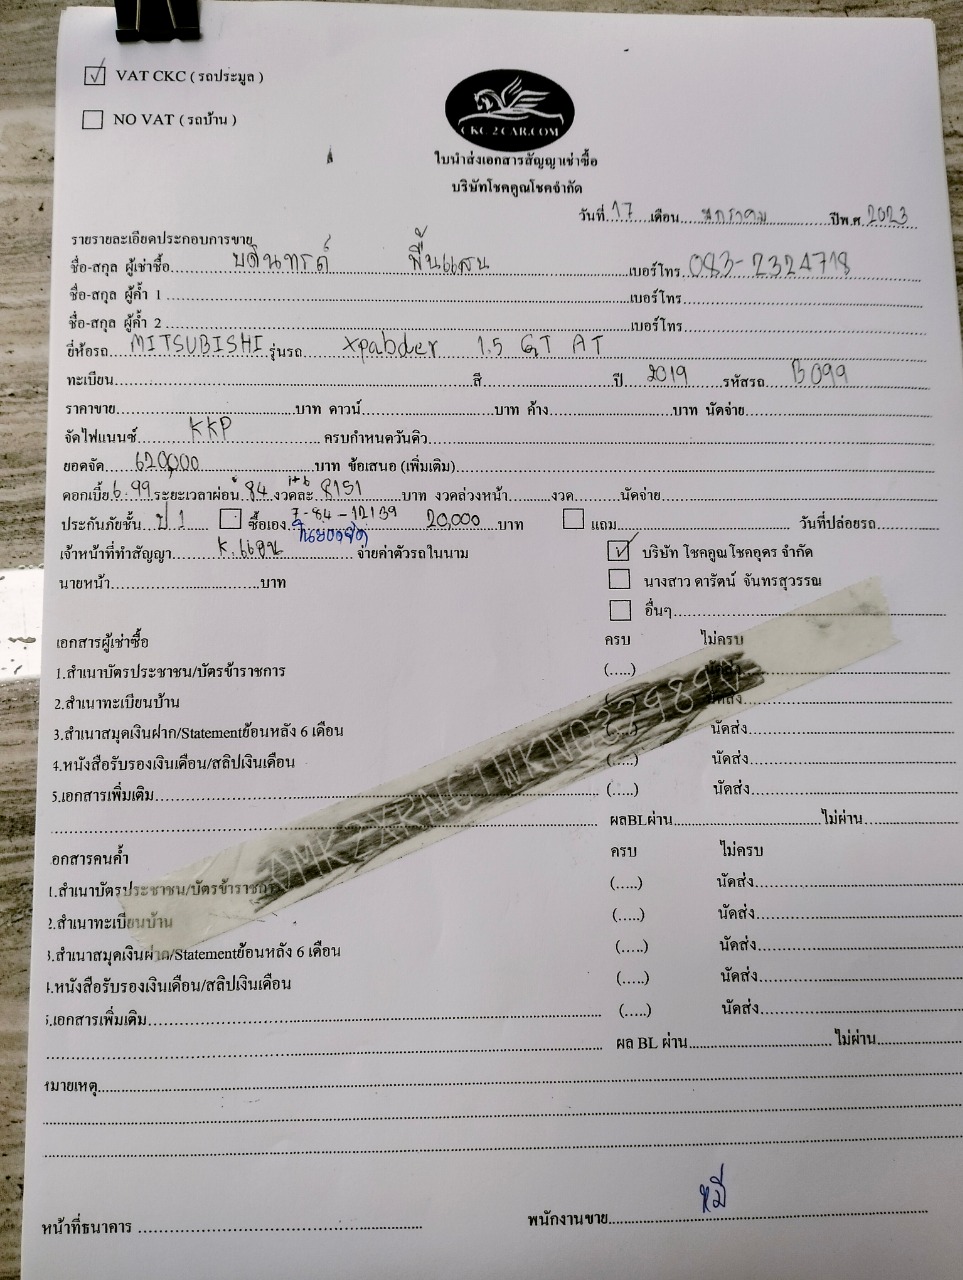 VAT CKC ( รถประมูล )
NO VAT ( รถบ้าน )
CKC 2 CAR.COM
ใบนำส่งเอกสารสัญญาเช่าซื้อ
บริษัทโชคคูณโชคจำกัด
วันที่ 17 เดือน มกราคม ปีพ.ศ. 2023
รายรายละเอียดประกอบการขาย
ชื่อ-สกุล ผู้เช่าซื้อ บดินทรต์ พื้นแสน เบอร์โทร 083-2324718
ชื่อ-สกุล ผู้ค้ำ 1 เบอร์โทร
ชื่อ-สกุล ผู้ค้ำ 2 เบอร์โทร
ยี่ห้อรถ MITSUBISHI รุ่นรถ Xpabder 1.5 GT AT
ทะเบียน สี ปี 2019 รหัสรถ B099
ราคาขาย บาท ดาวน์ บาท ค้าง บาท นัดจ่าย
จัดไฟแนนซ์ KKP ครบกำหนดวันคิว
ยอดจัด 620,000 บาท ข้อเสนอ (เพิ่มเติม)
ดอกเบี้ย 6.99 ระยะเวลาผ่อน 84 งวดละ 8151 บาท งวดล่วงหน้า งวด นัดจ่าย
ประกันภัยชั้น ป 1 ซื้อเอง 7-84-12139 20,000 บาท แถม วันที่ปล่อยรถ
เจ้าหน้าที่ทำสัญญา K.แอน จ่ายค่าตัวรถในนาม บริษัท โชคคูณโชคอุดร จำกัด
นายหน้า บาท นางสาว ดารัตน์ จันทรสุวรรณ
อื่นๆ
เอกสารผู้เช่าซื้อ ครบ ไม่ครบ
1.สำเนาบัตรประชาชน/บัตรข้าราชการ (.....) นัดส่ง
2.สำเนาทะเบียนบ้าน นัดส่ง
3.สำเนาสมุดเงินฝาก/Statementย้อนหลัง 6 เดือน (.....) นัดส่ง
4.หนังสือรับรองเงินเดือน/สลิปเงินเดือน (.....) นัดส่ง
5.เอกสารเพิ่มเติม (.....) นัดส่ง
ผลBLผ่าน ไม่ผ่าน
เอกสารคนค้ำ ครบ ไม่ครบ
1.สำเนาบัตรประชาชน/บัตรข้าราชการ (.....) นัดส่ง
2.สำเนาทะเบียนบ้าน (.....) นัดส่ง
3.สำเนาสมุดเงินฝาก/Statementย้อนหลัง 6 เดือน (.....) นัดส่ง
4.หนังสือรับรองเงินเดือน/สลิปเงินเดือน (.....) นัดส่ง
5.เอกสารเพิ่มเติม (.....) นัดส่ง
ผล BL ผ่าน ไม่ผ่าน
หมายเหตุ
หน้าที่ธนาคาร พนักงานขาย หมี